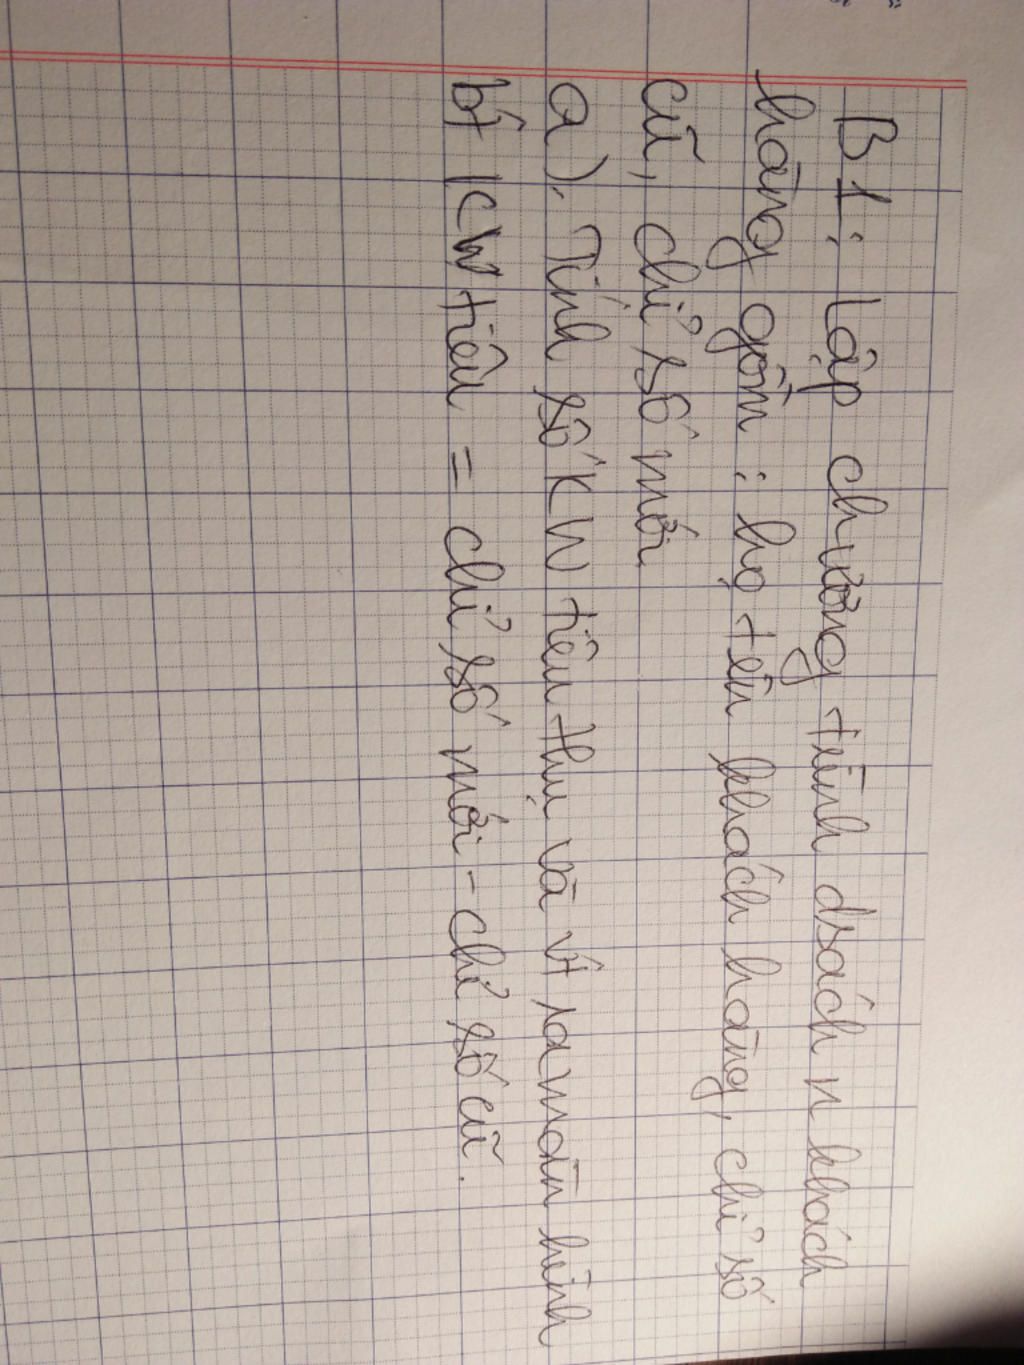 B1: Lập chương trình dsách n khách
hàng gồm: họ tên khách hàng, chỉ số
cũ, chỉ số mới
a). Tính số KW tiêu thụ và vt ra màn hình
bt KW tiêu = chỉ số mới - chỉ số cũ.